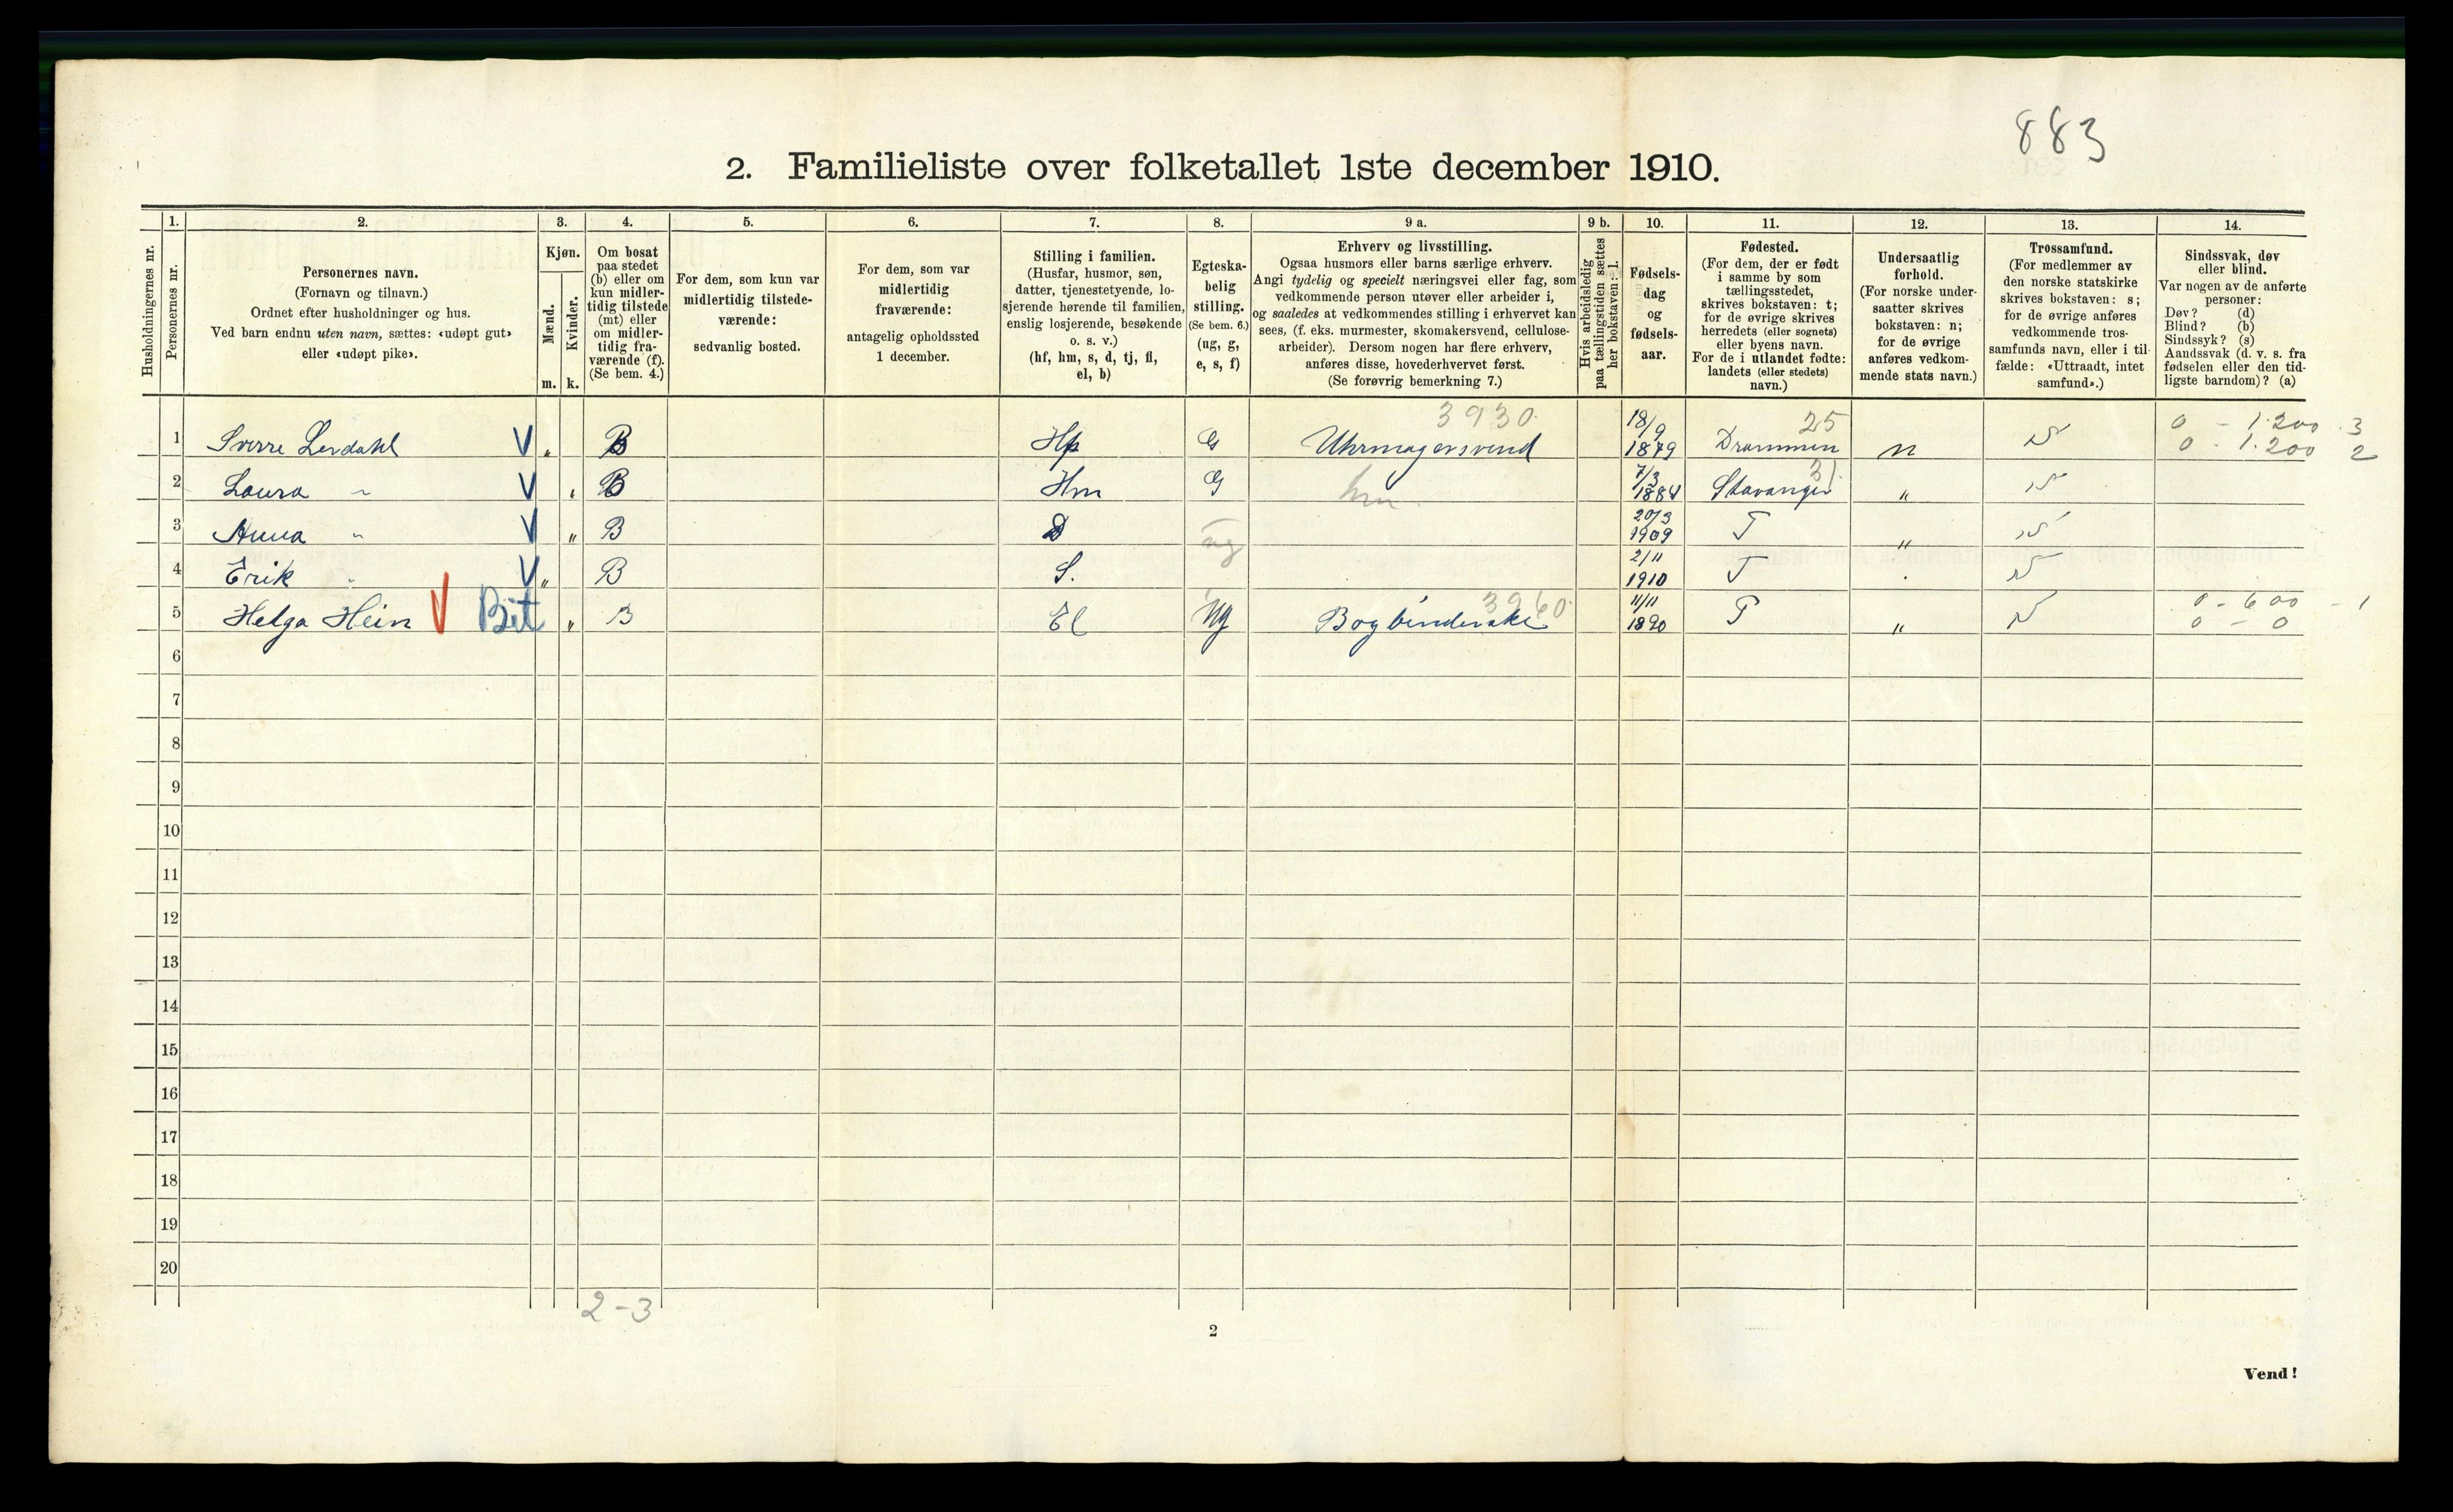 883
2. Familieliste over folketallet 1ste december 1910.
Husholdningernes nr.
1.
Personernes nr.
2.
Personernes navn.
(Fornavn og tilnavn.)
Ordnet efter husholdninger og hus.
Ved barn endnu uten navn, sættes: «udøpt gut»
eller «udøpt pike».
3.
Kjøn.
Mænd.
Kvinder.
m. k.
4.
Om bosat
paa stedet
(b) eller om
kun midler-
tidig tilstede
(mt) eller
om midler-
tidig fra-
værende (f).
(Se bem. 4.)
5.
For dem, som kun var
midlertidig tilstede-
værende:
sedvanlig bosted.
6.
For dem, som var
midlertidig
fraværende:
antagelig opholdssted
1 december.
7.
Stilling i familien.
(Husfar, husmor, søn,
datter, tjenestetyende, lo-
sjerende hørende til familien,
enslig losjerende, besøkende
o. s. v.)
(hf, hm, s, d, tj, fl,
el, b)
8.
Egteska-
belig
stilling.
(Se bem. 6.)
(ug, g,
e, s, f)
9 a.
Erhverv og livsstilling.
Ogsaa husmors eller barns særlige erhverv.
Angi tydelig og specielt næringsvei eller fag, som
vedkommende person utøver eller arbeider i,
og saaledes at vedkommendes stilling i erhvervet kan
sees, (f. eks. murmester, skomakersvend, cellulose-
arbeider). Dersom nogen har flere erhverv,
anføres disse, hovederhvervet først.
(Se forøvrig bemerkning 7.)
9 b.
Hvis arbeidsledig
paa tællingstiden sættes
her bokstaven: l.
10.
Fødsels-
dag
og
fødsels-
aar.
11.
Fødested.
(For dem, der er født
i samme by som
tællingsstedet,
skrives bokstaven: t;
for de øvrige skrives
herredets (eller sognets)
eller byens navn.
For de i utlandet fødte:
landets (eller stedets)
navn.)
12.
Undersaatlig
forhold.
(For norske under-
saatter skrives
bokstaven: n;
for de øvrige
anføres vedkom-
mende stats navn.)
13.
Trossamfund.
(For medlemmer av
den norske statskirke
skrives bokstaven: s;
for de øvrige anføres
vedkommende tros-
samfunds navn, eller i til-
fælde: «Uttraadt, intet
samfund».)
14.
Sindssvak, døv
eller blind.
Var nogen av de anførte
personer:
Døv? (d)
Blind? (b)
Sindssyk? (s)
Aandssvak (d. v. s. fra
fødselen eller den tid-
ligste barndom)? (a)
3930 18/9 25 0 - 1.200 . 3
1 Sverre Lerdahl V „ B Hf G Uhrmagersvend 1879 Drammen n 0 - 1.200 2
7/3 31
2 Laura " V „ B Hm G hm 1884 Stavanger "
20/3
3 Anna " V „ B D ug 1909 T "
2/11
4 Erik " V „ B S. 1910 T "
3960 11/11 0 - 600 - 1
5 Helga Hein V Bit „ B El Ug Bogbinderske 1890 T " 0 - 0
6
7
8
9
10
11
12
13
14
15
16
17
18
19
20
2-3
2
Vend!